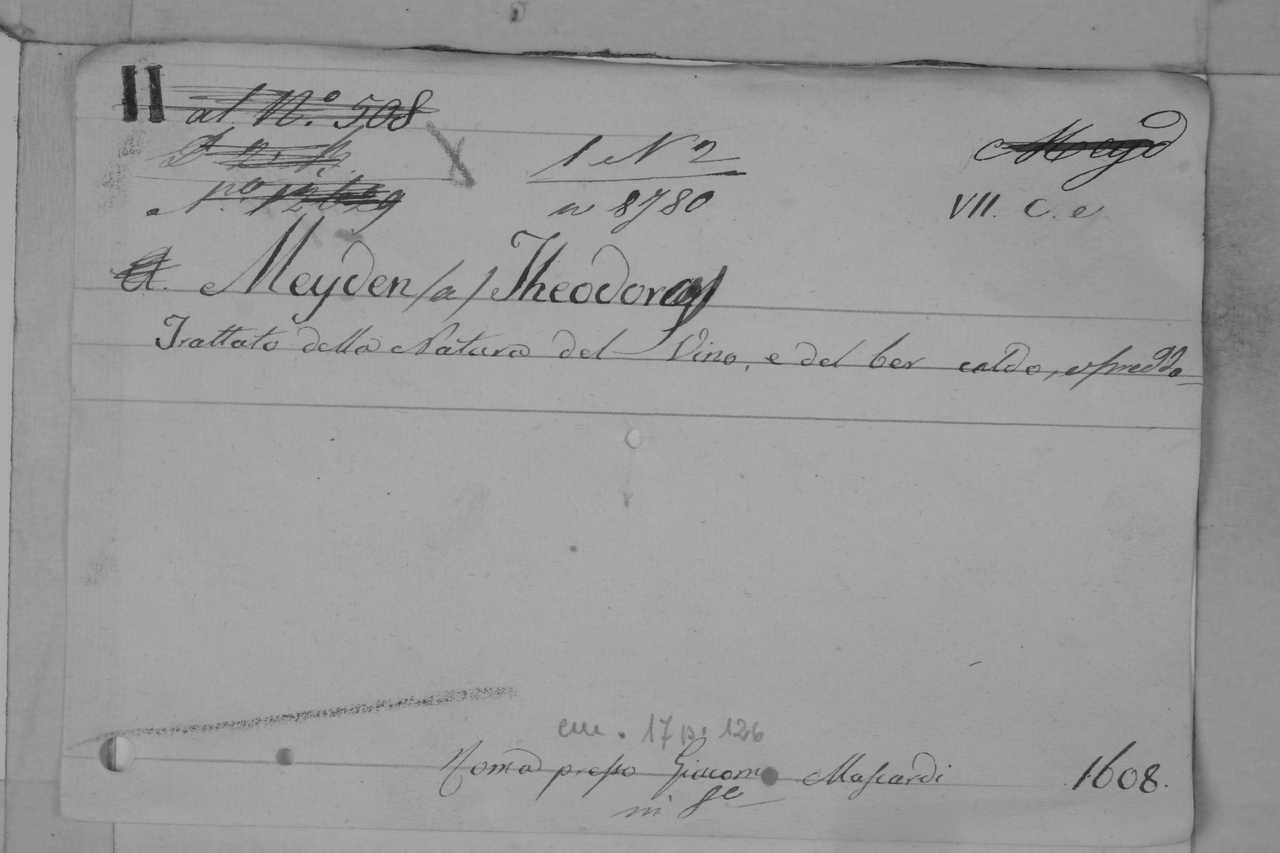 II al N.º 508
1 N 2
8780
Meyd
VII. C. e
N.º 12629
Meyden (a) Theodorus
Trattato della Natura del Vino, e del ber caldo, e freddo
cm. 17 p. 126
Roma presso Giacomo Mascardi 1608.
in 8º